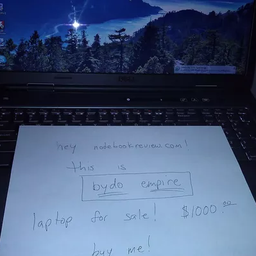 hey notebookreview.com!
this is
bydo empire
laptop for sale! $1000.00
buy me!